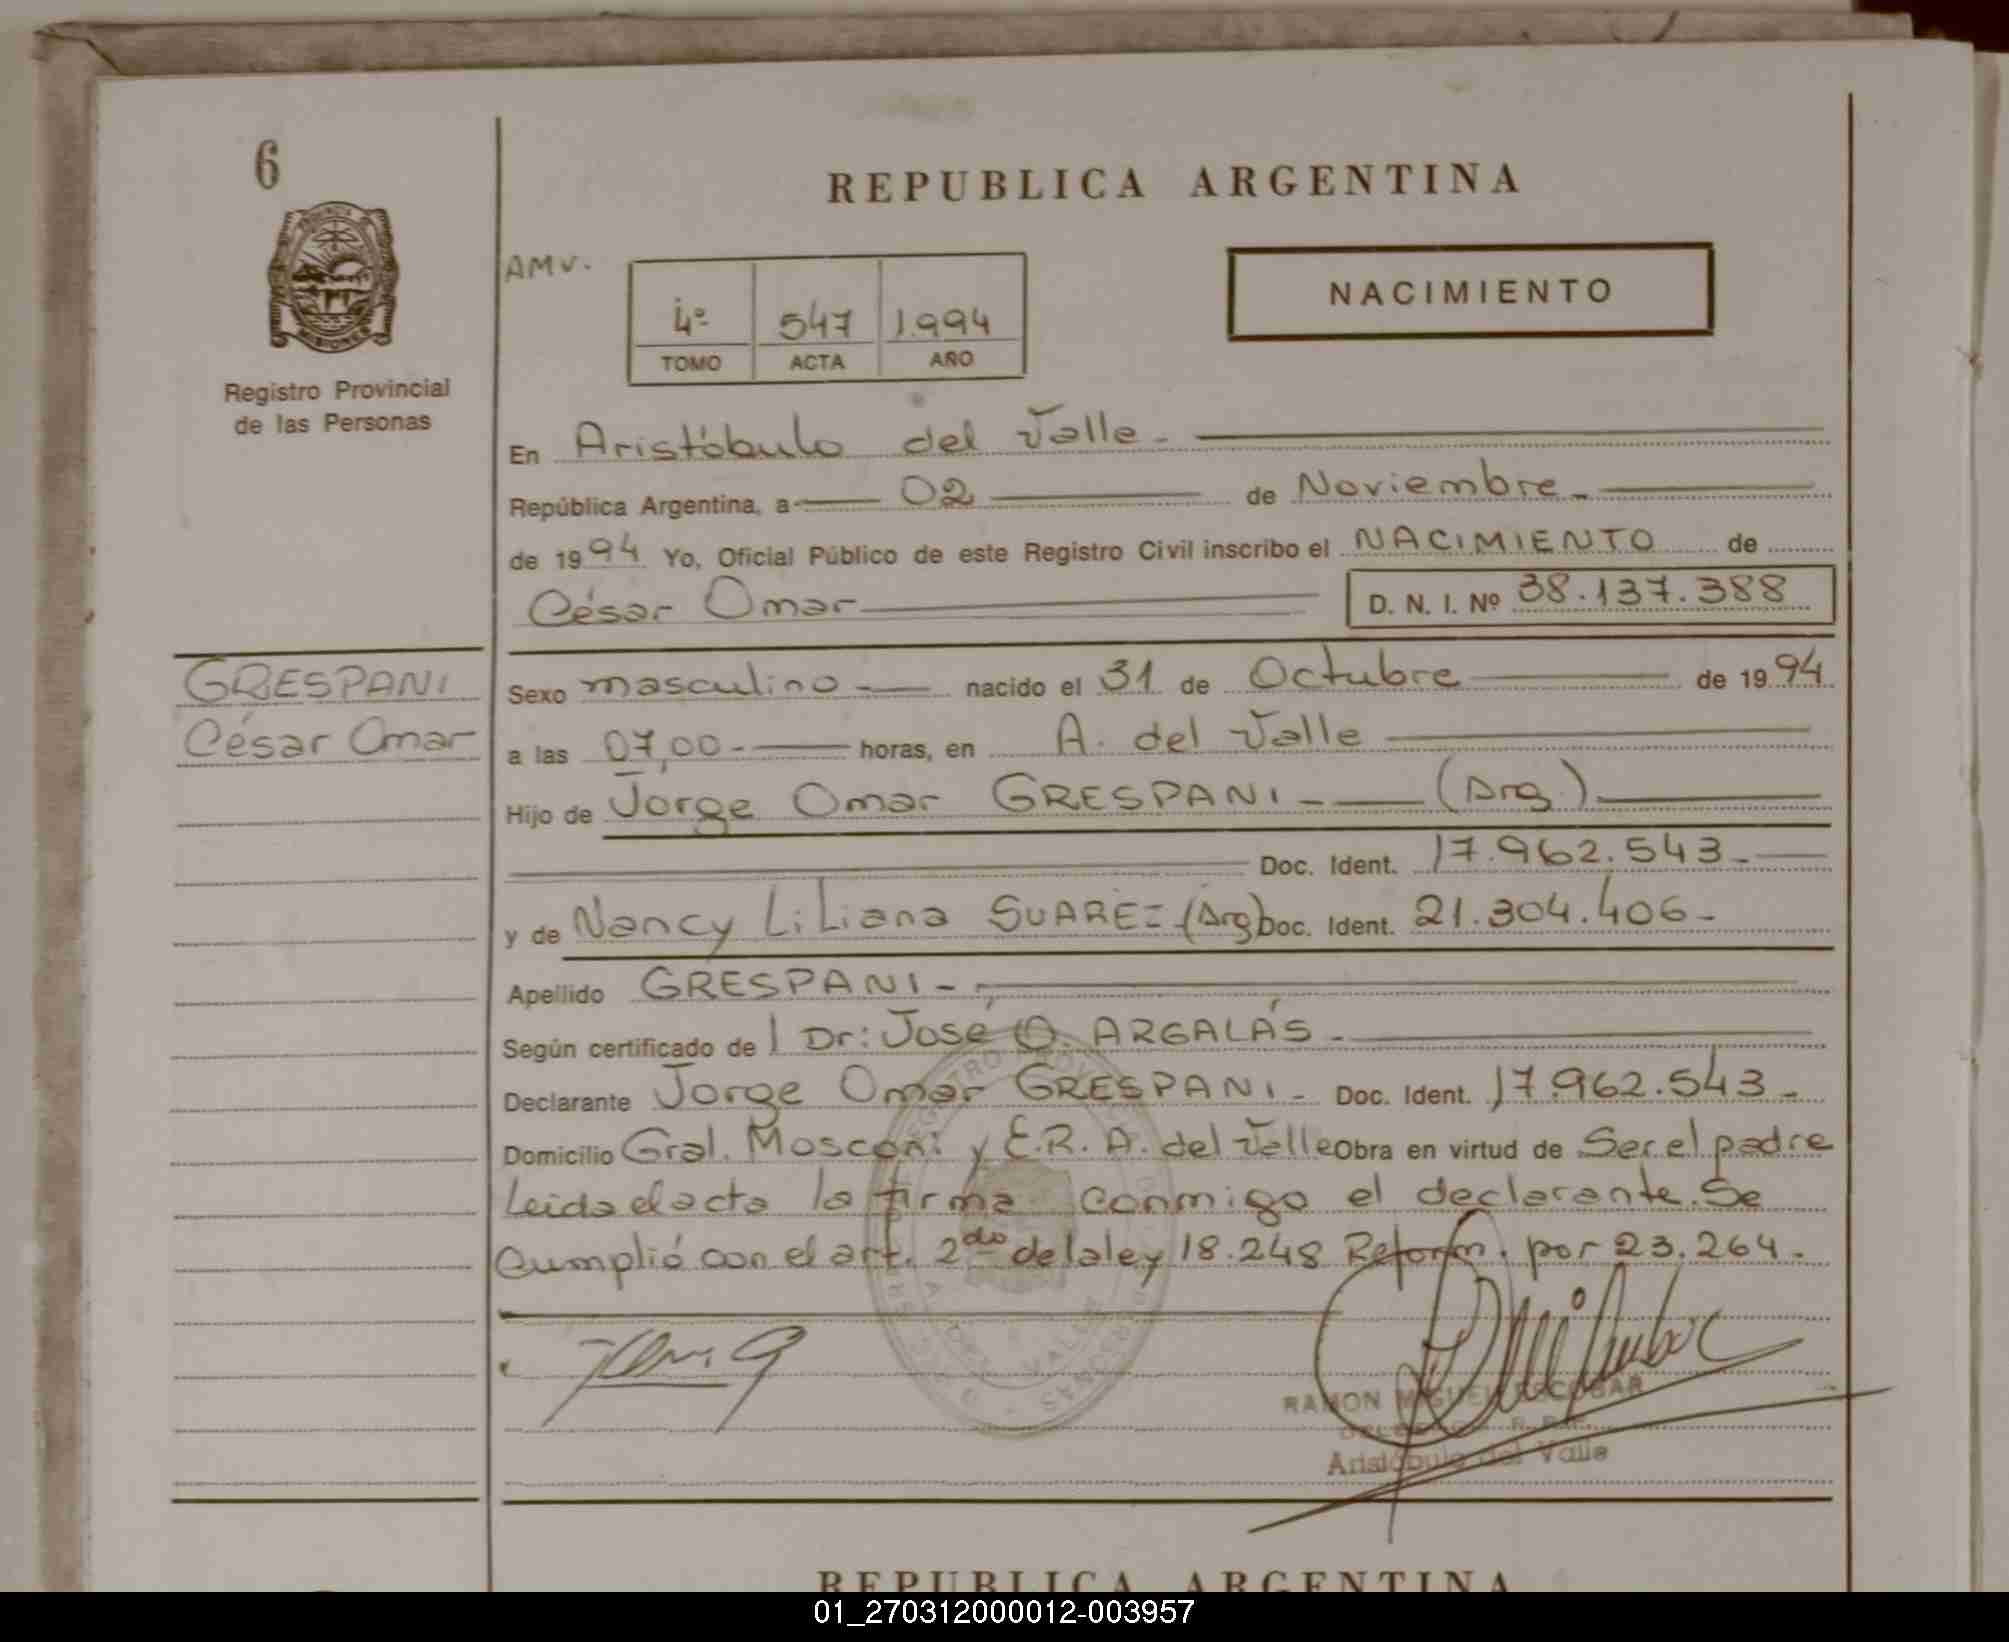 6
REPUBLICA ARGENTINA
AMV.
4º 547 1.994
TOMO ACTA AÑO
NACIMIENTO
MISIONES
Registro Provincial
de las Personas
En Aristóbulo del Valle.
República Argentina, a 02 de Noviembre
de 1994 Yo, Oficial Público de este Registro Civil inscribo el NACIMIENTO de
César Omar D. N. I. Nº 38.137.388
GRESPANI
César Omar
Sexo masculino nacido el 31 de Octubre de 1994
a las 07,00 horas, en A. del Valle
Hijo de Jorge Omar GRESPANI (Arg.)
Doc. Ident. 17.962.543
y de Nancy Liliana SUAREZ (Arg) Doc. Ident. 21.304.406
Apellido GRESPANI
Según certificado de l Dr: José O. ARGALÁS
Declarante Jorge Omar GRESPANI Doc. Ident. 17.962.543
Domicilio Gral. Mosconi y E.R. A. del Valle Obra en virtud de Ser el padre
Leida el acta la firma conmigo el declarante. Se
Cumplió con el art. 2do de la ley 18.248 Reform. por 23.264.
RAMON MIGUEL ESCOBAR
Aristóbulo del Valle
REPUBLICA ARGENTINA
01_270312000012-003957